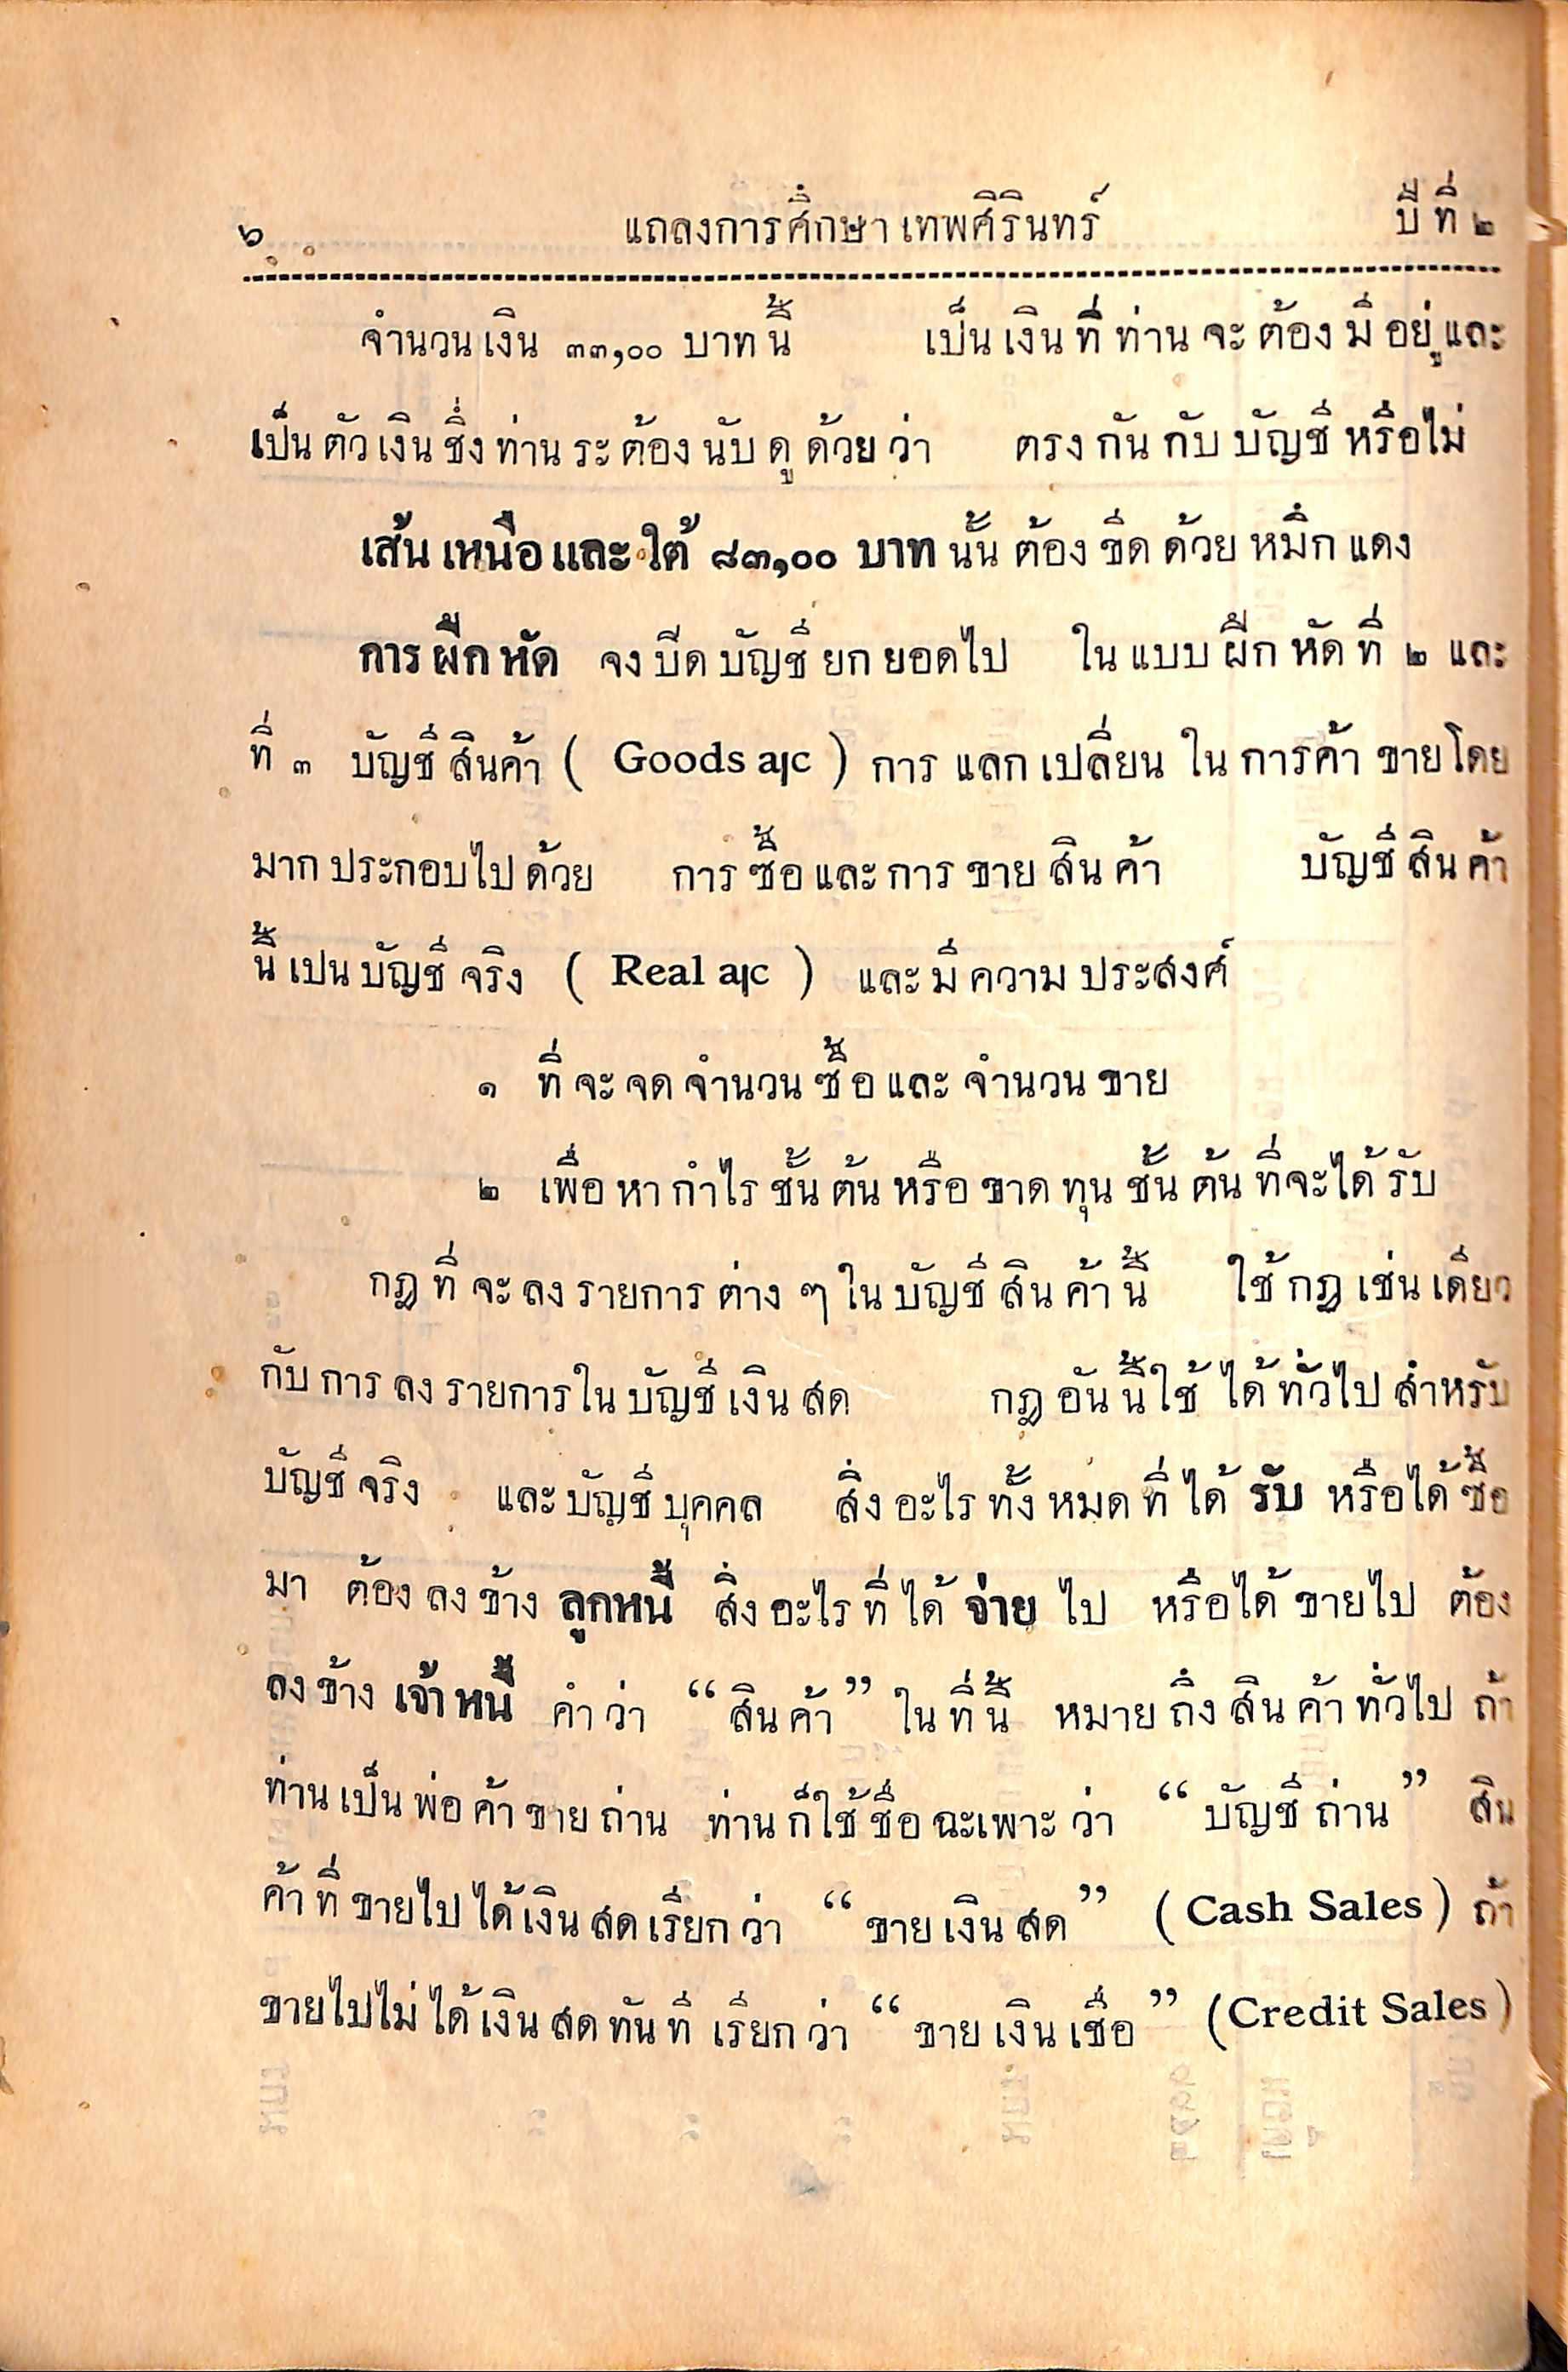 ๖ แถลงการศึกษาเทพศิรินทร์ ปีที่ ๒
จำนวนเงิน ๓๓,๐๐ บาทนี้ เป็นเงินที่ท่านจะต้องมีอยู่และ
เป็นตัวเงินซึ่งท่านระต้องนับดูด้วยว่า ตรงกันกับบัญชีหรือไม่
เส้นเหนือและใต้ ๘๓,๐๐ บาทนั้นต้องขีดด้วยหมึกแดง
การฝึกหัด จงปิดบัญชียกยอดไป ในแบบฝึกหัดที่ ๒ และ
ที่ ๓ บัญชีสินค้า ( Goods a|c ) การแลกเปลี่ยนในการค้าขายโดย
มากประกอบไปด้วย การซื้อและการขายสินค้า บัญชีสินค้า
นี้เปนบัญชีจริง ( Real a|c ) และมีความประสงศ์
๑ ที่จะจดจำนวนซื้อและจำนวนขาย
๒ เพื่อหากำไรชั้นต้นหรือขาดทุนชั้นต้นที่จะได้รับ
กฎที่จะลงรายการต่าง ๆ ในบัญชีสินค้านี้ ใช้กฎเช่นเดียว
กับการลงรายการในบัญชีเงินสด กฎอันนี้ใช้ได้ทั่วไปสำหรับ
บัญชีจริง และบัญชีบุคคล สิ่งอะไรทั้งหมดที่ได้รับ หรือได้ซื้อ
มา ต้องลงข้างลูกหนี้ สิ่งอะไรที่ได้จ่ายไป หรือได้ขายไป ต้อง
ลงข้างเจ้าหนี้ คำว่า “สินค้า” ในที่นี้ หมายถึงสินค้าทั่วไป ถ้า
ท่านเป็นพ่อค้าขายถ่าน ท่านก็ใช้ชื่อฉะเพาะว่า “บัญชีถ่าน” สิน
ค้าที่ขายไปได้เงินสดเรียกว่า “ขายเงินสด” ( Cash Sales ) ถ้า
ขายไปไม่ได้เงินสดทันที เรียกว่า “ขายเงินเชื่อ” (Credit Sales)